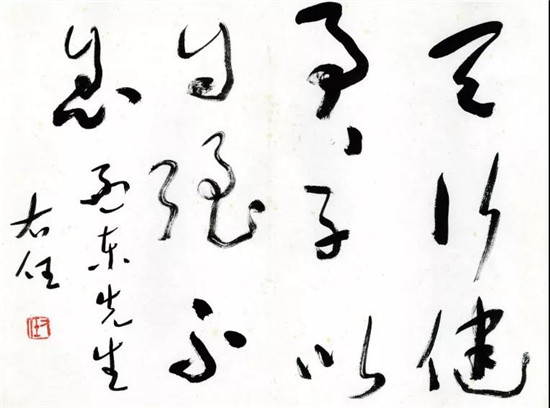 天行健
君子以
自強不
息
東先生
右任